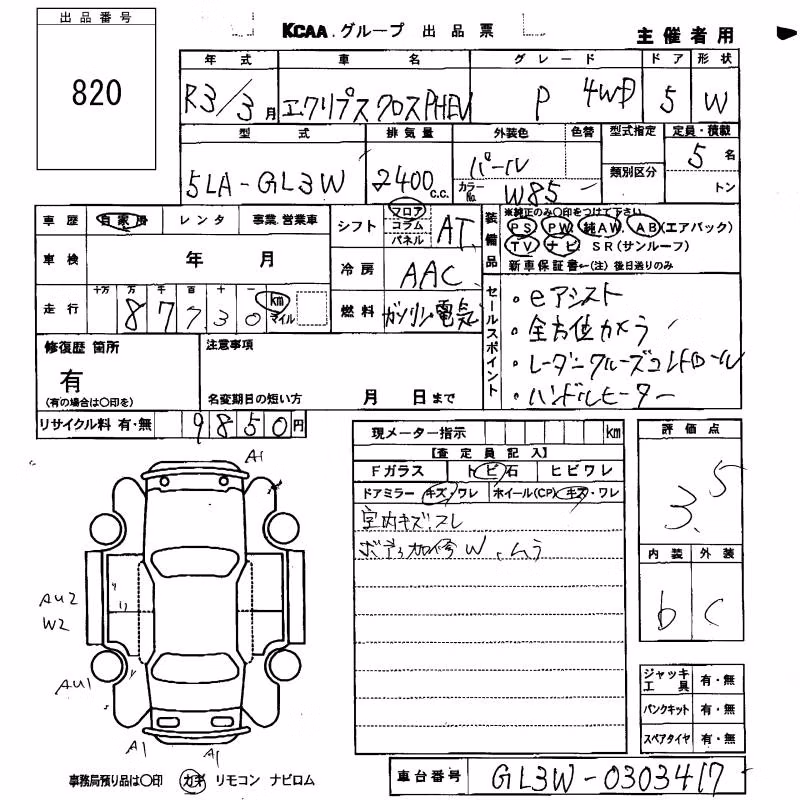 出品番号
820
KCAA.グループ 出品票
主催者用
年式 車名 グレード ドア 形状
R3/3月 エクリプスクロスPHEV P 4WD 5 W
型式 排気量 外装色 色替 型式指定 定員・積載
5LA-GL3W 2400 c.c. パール カラーNo. W85 類別区分 5名 トン
車歴 自家用 レンタ 事業・営業車
車検 年 月
走行 十万 万 千 百 十 一 km マイル
87730
シフト フロア コラム パネル AT
冷房 AAC
燃料 ガソリン電気
装備品 ※純正のみ〇印をつけて下さい
PS PW 純AW. AB(エアバック)
TV ナビ SR(サンルーフ)
新車保証書←(注)後日送りのみ
セールスポイント
・eアシスト
・全方位カメラ
・レーダークルーズコントロール
・ハンドルヒーター
修復歴 箇所
有
(有の場合は〇印を)
注意事項
名変期日の短い方 月 日まで
リサイクル料 有・無 9850円
現メーター指示 km
【査定員記入】
Fガラス トビ石 ヒビワレ
ドアミラー キズ・ワレ ホイール(CP) キズ・ワレ
室内キズ.スレ
ボディ加修W.ムラ
評価点
3.5
内装 外装
b c
ジャッキ工具 有・無
パンクキット 有・無
スペアタイヤ 有・無
A1
AU2
W2
AU1
A1
A1
事務局預り品は〇印 カギ リモコン ナビロム
車台番号 GL3W-0303417